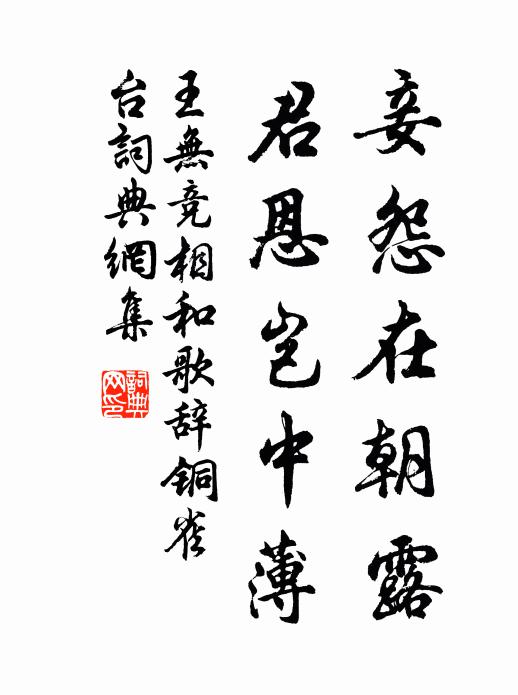 妾怨在朝露
君恩岂中薄
王無竞相和歌辞铜雀
台詞典網集
詞典
网印